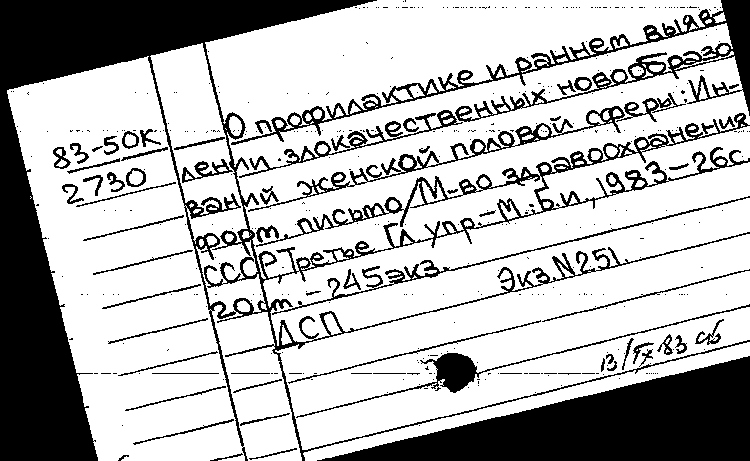 83-50К
2730
О профилактике и раннем выяв-
лении злокачественных новообразо
ваний женской половой сферы: Ин-
форм. письмо/М-во здравоохранения
СССР, Третье Гл. упр.-М.:Б.и., 1983-26с.
20см.-245экз. Экз.N251.
ДСП.
13/IX-83 сб